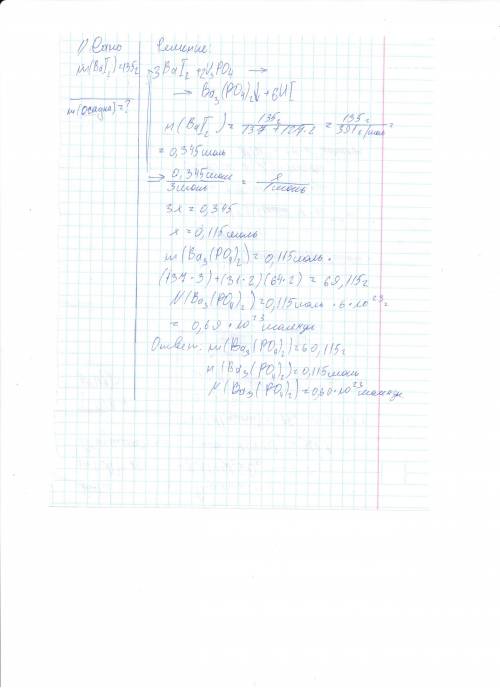 1) Дано
Решение:
m(BaI₂)=135г
3BaI₂ + 2H₃PO₄ →
→ Ba₃(PO₄)₂↓ + 6HI
m(осадка)=?
n(BaI₂) = 135г / 137+127·2 = 135г / 391г/моль =
= 0,345моль
=> 0,345моль / 3моль = x / 1моль
3x = 0,345
x = 0,115моль
m(Ba₃(PO₄)₂) = 0,115моль ·
(137·3)+(31·2)(64·2) = 69,115г
N(Ba₃(PO₄)₂) = 0,115моль · 6·10²³ =
= 0,69·10²³ молекул
Ответ: m(Ba₃(PO₄)₂) = 60,115г
n(Ba₃(PO₄)₂) = 0,115моль
N(Ba₃(PO₄)₂) = 0,60·10²³ молекул